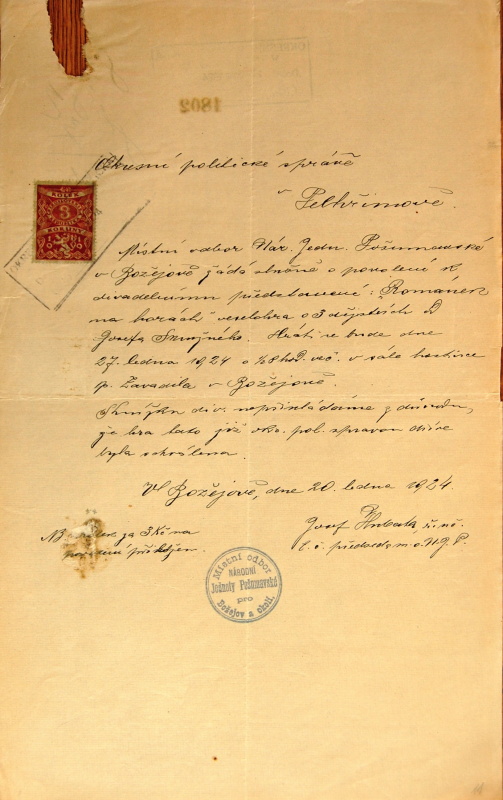 1802
Okresní politické správě
v Pelhřimově.
KOLEK
3
KORUNY
Místní odbor Nár. Jedn. Pošumavské
v Božejově žádá slušně o povolení k
divadelnímu představení: Romanek
na horách veselohra o 3 dějstvích D
Josefa Hráti se bude dne
27. ledna 1924 o ½8 hod več. v sále hostince
p. Zavadila v Božejově.
div. nepřikládáme z důvodu,
že hra tato již okr. pol. správou dříve
byla schválena.
V Božejově, dne 20. ledna 1924.
Josef říd. uč.
za 3 Kč na
povolení přikládám.
t. č. předseda m. o. N. J. P.
Místní odbor
NÁRODNÍ
Jednoty Pošumavské
pro
Božejov a okolí.